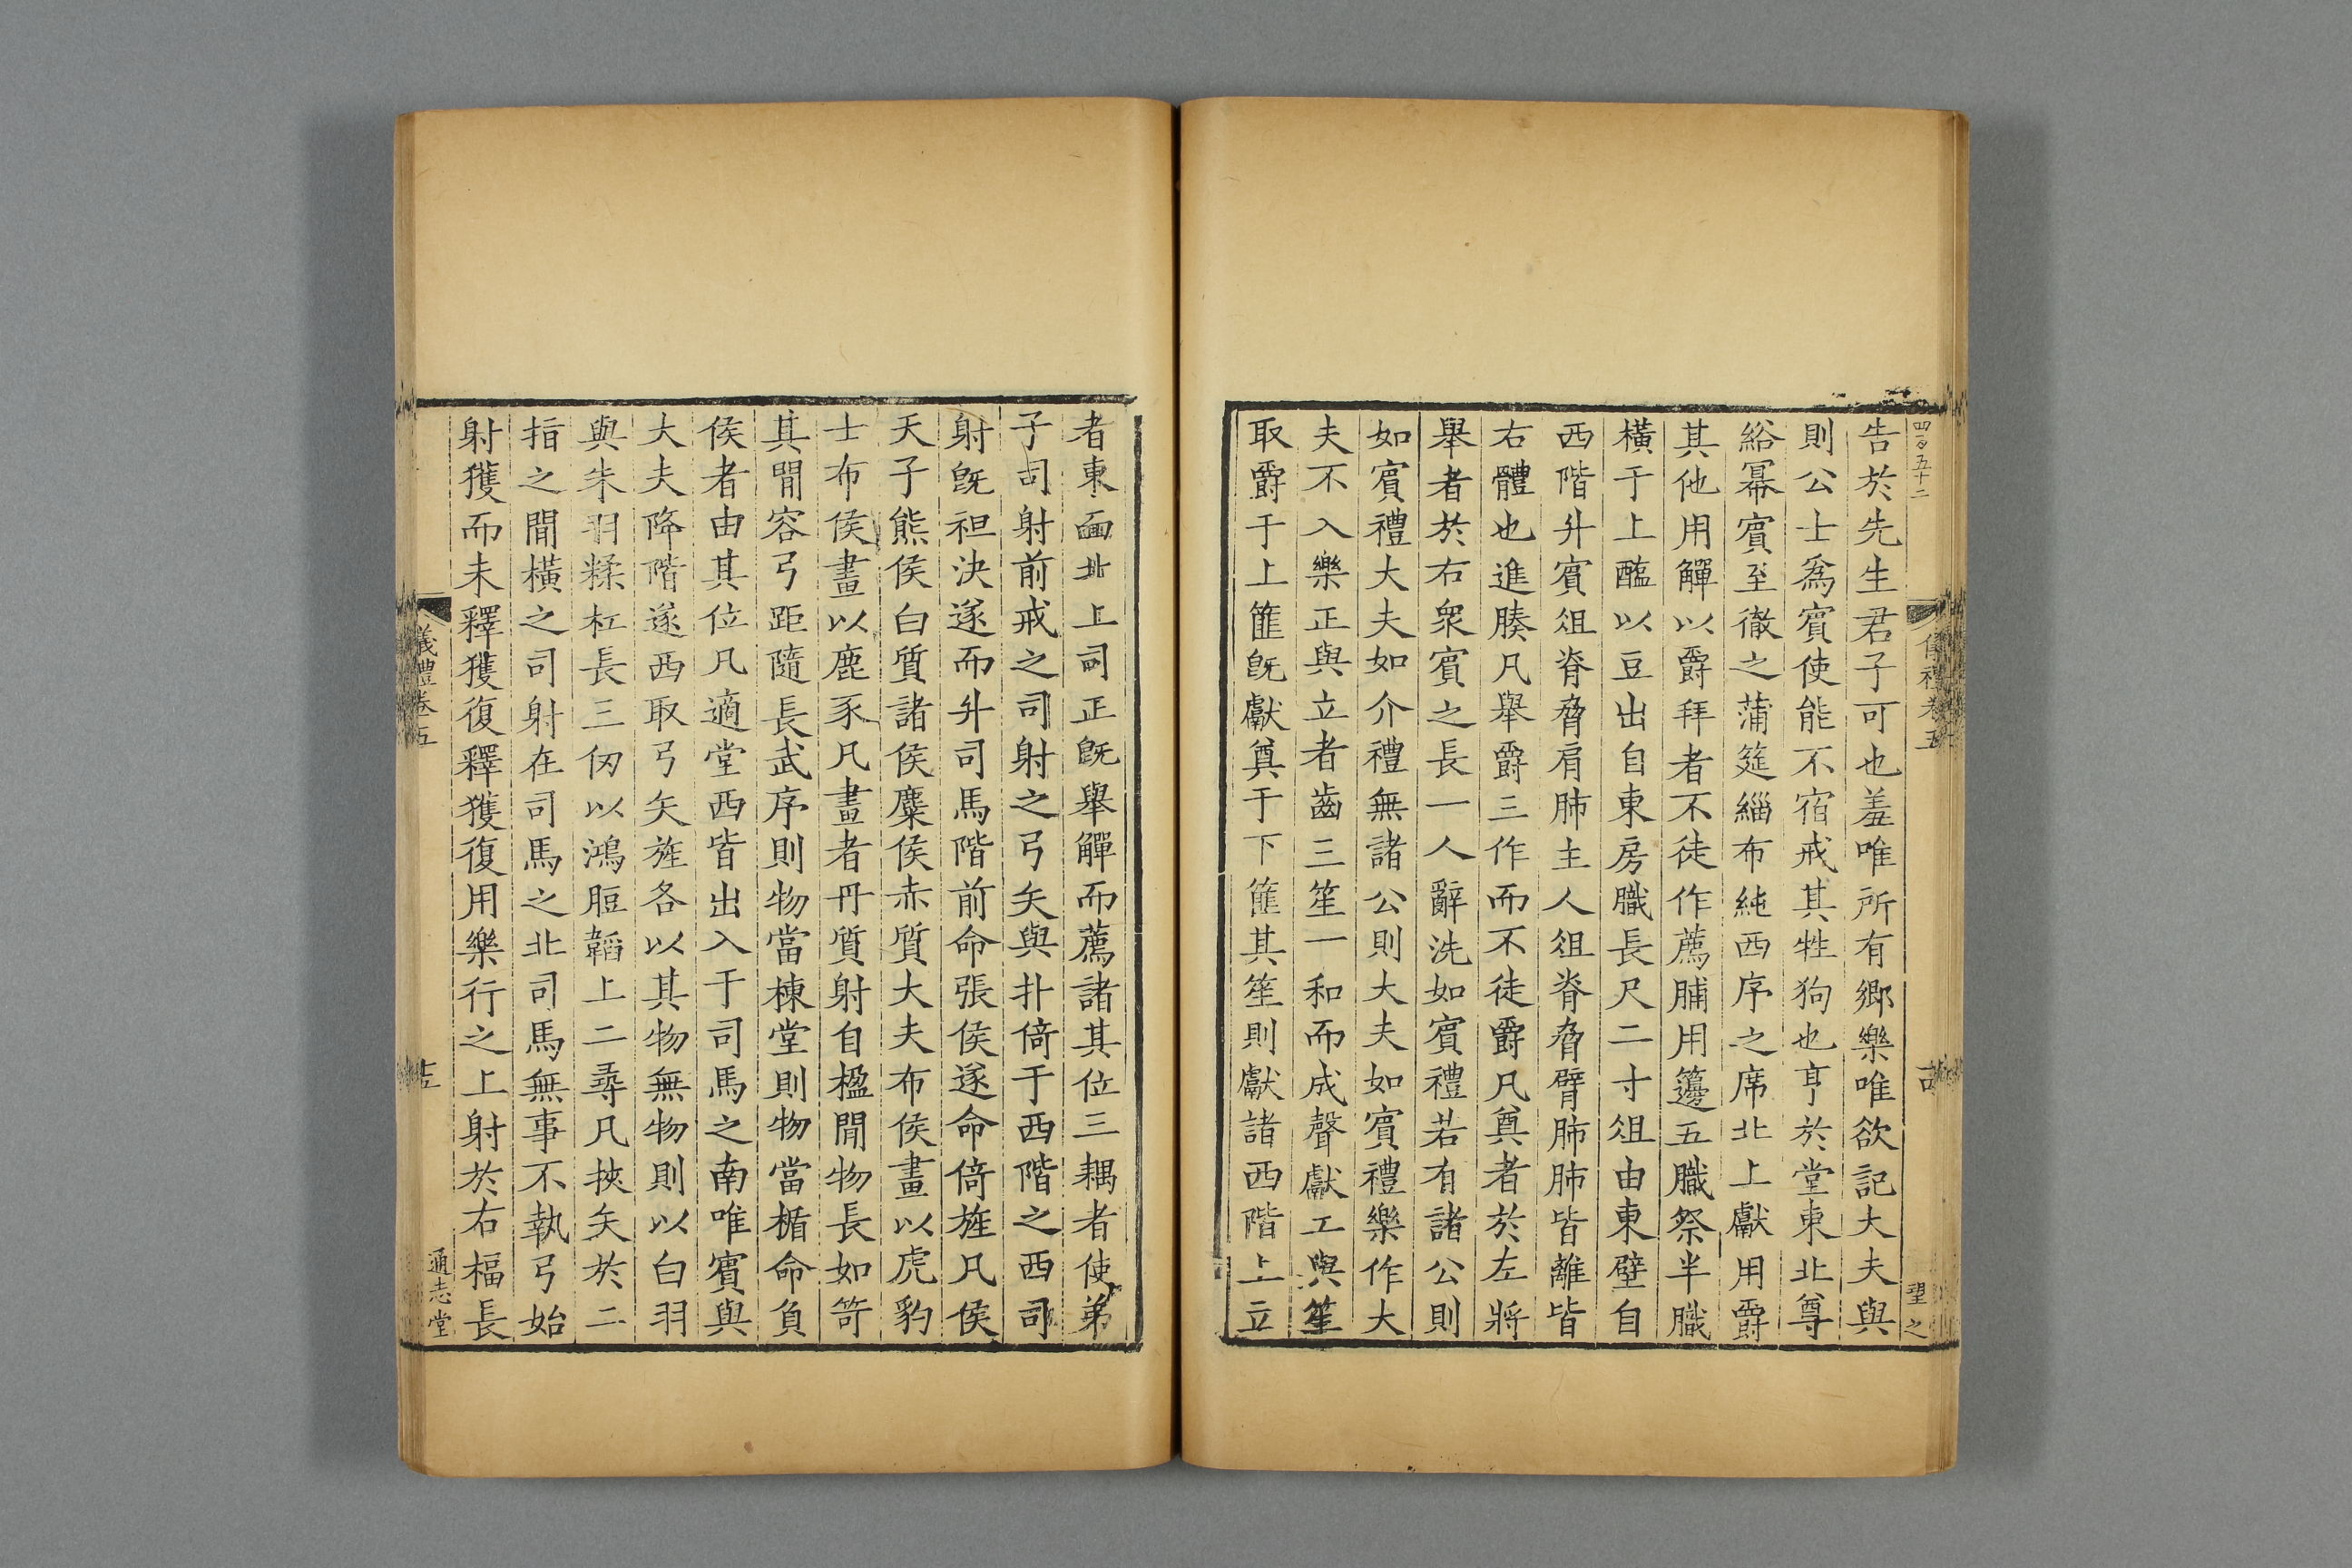 四百五十二
儀禮卷五
望之
告於先生君子可也羞唯所有鄉樂唯欲記大夫與
則公士爲賓使能不宿戒其牲狗也亨於堂東北尊
綌冪賓至徹之蒲筵緇布純西序之席北上獻用爵
其他用觶以爵拜者不徒作薦脯用籩五膱祭半膱
橫于上醢以豆出自東房膱長尺二寸俎由東壁自
西階升賓俎脊脅肩肺主人俎脊脅臂肺肺皆離皆
右體也進腠凡舉爵三作而不徒爵凡奠者於左將
舉者於右衆賓之長一人辭洗如賓禮若有諸公則
如賓禮大夫如介禮無諸公則大夫如賓禮樂作大
夫不入樂正與立者齒三笙一和而成聲獻工與笙
取爵于上篚旣獻奠于下篚其笙則獻諸西階上立
者東面北上司正旣舉觶而薦諸其位三耦者使弟
子司射前戒之司射之弓矢與扑倚于西階之西司
射旣袒決遂而升司馬階前命張侯遂命倚旌凡侯
天子熊侯白質諸侯麋侯赤質大夫布侯畫以虎豹
士布侯畫以鹿豕凡畫者丹質射自楹閒物長如笴
其閒容弓距隨長武序則物當棟堂則物當楣命負
侯者由其位凡適堂西皆出入于司馬之南唯賓與
大夫降階遂西取弓矢旌各以其物無物則以白羽
與朱羽糅杠長三仞以鴻脰韜上二尋凡挾矢於二
指之閒橫之司射在司馬之北司馬無事不執弓始
射獲而未釋獲復釋獲復用樂行之上射於右楅長
儀禮卷五
十五
通志堂